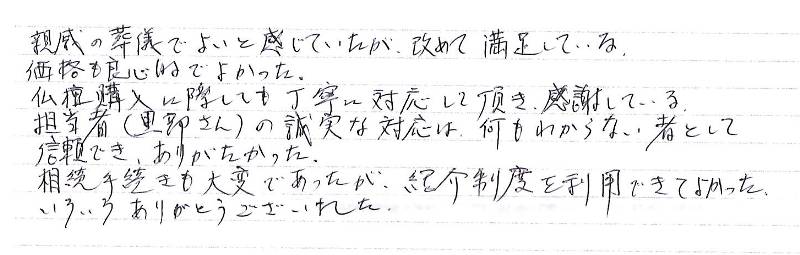 親戚の葬儀でよいと感じていたが、改めて満足している。
価格も良心的でよかった。
仏壇購入に際しても丁寧に対応して頂き、感謝している。
担当者(さん)の誠実な対応は、何もわからない者として
信頼でき、ありがたかった。
相続手続きも大変であったが、紹介制度を利用できてよかった。
いろいろありがとうございました。